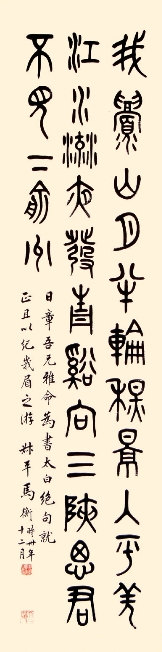 我眉山月半輪秋景入平羌
江水流夜發青谿向三陜思君
不見二俞州
日章吾兄雅命為書太白絕句就
正且以紀峩眉之游 叔平馬衡 時卅年
十二月